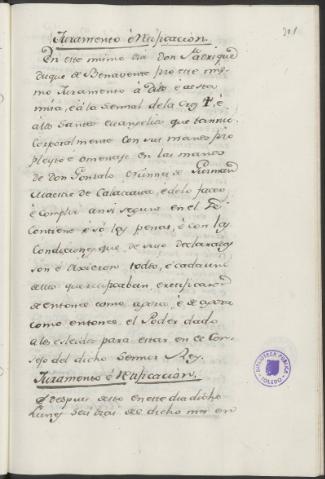 301
Juramento é Retificacion.
En este mismo dia Don Fadrique
Duque de Benavente fizo este mis-
mo Juramento á Dios é a esta
mía, é á la Sennal de la Cruz ✝ é
á los Santos evangelios que tannio
corporalmente con sus manos fizo
pleyto é omenaje en las manos
de don Gonzalo Nunnez de Guzman
Maestre de Calatrava, é de lo facer
é complir ansi segun en el
contiene é só las penas, é con las
Condiziones que de suso declaradas
son é dixieron todos, é cada uno
dellos que retificaban, é retificaron
de entonce como agora, é de agora
como entonce el Poder dado
a los esleidos para estar en el Con-
sejo del dicho Sennor Rey.
Juramento é Retificacion.
E despues desto en este dia dicho
Lunes seis dias del dicho mes en
BIBLIOTECA PUBLICA
TOLEDO